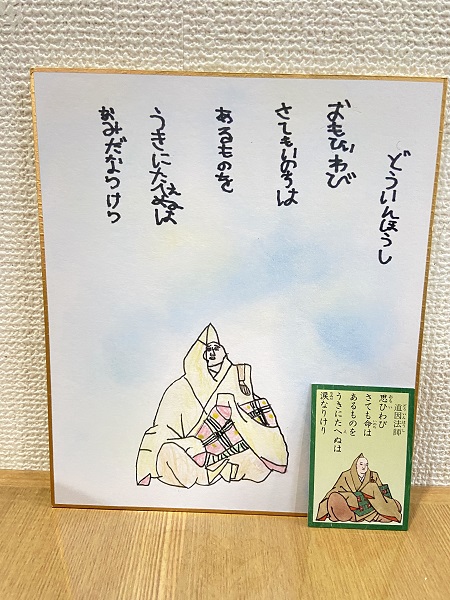 どういんほうし
おもひわび
さてもいのちは
あるものを
うきにたへぬは
なみだなりけり
道因法師
思ひわび
さても命は
あるものを
うきにたへぬは
涙なりけり